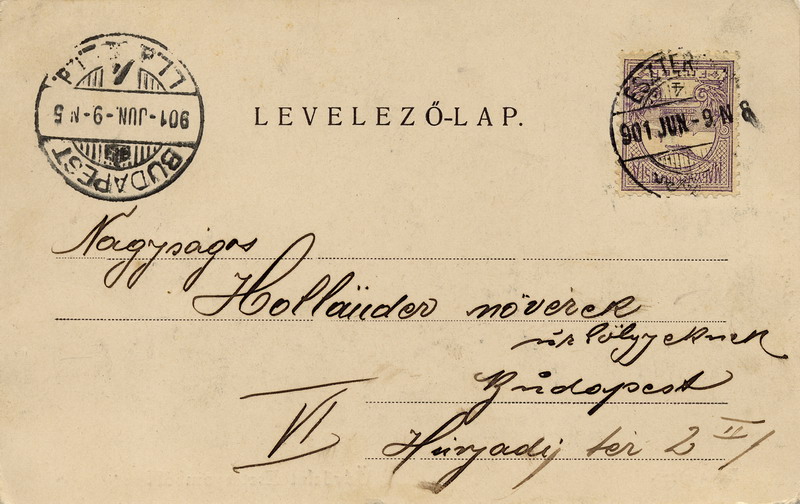 BUDAPEST
901-JUN.-9-N5
ESZTER
901 JUN.-9 N 8
LEVELEZŐ-LAP.
Nagyságos
Holländer nővérek
úrhölgyeknek
Budapest
VI Hunyadi tér 2 II/